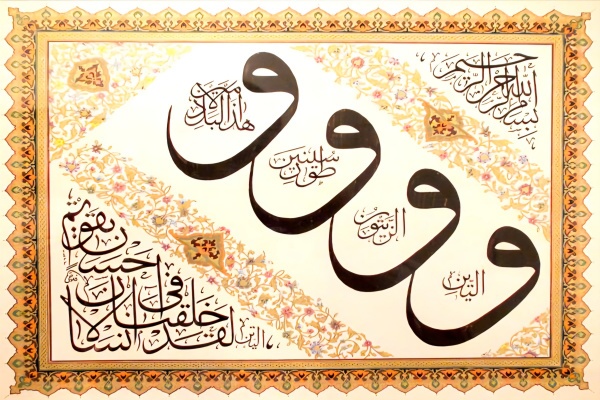 بسم الله الرحمن الرحيم
والتين
والزيتون
وطور سينين
وهذا البلد الامين
لقد خلقنا الانسان فى احسن تقويم
التين